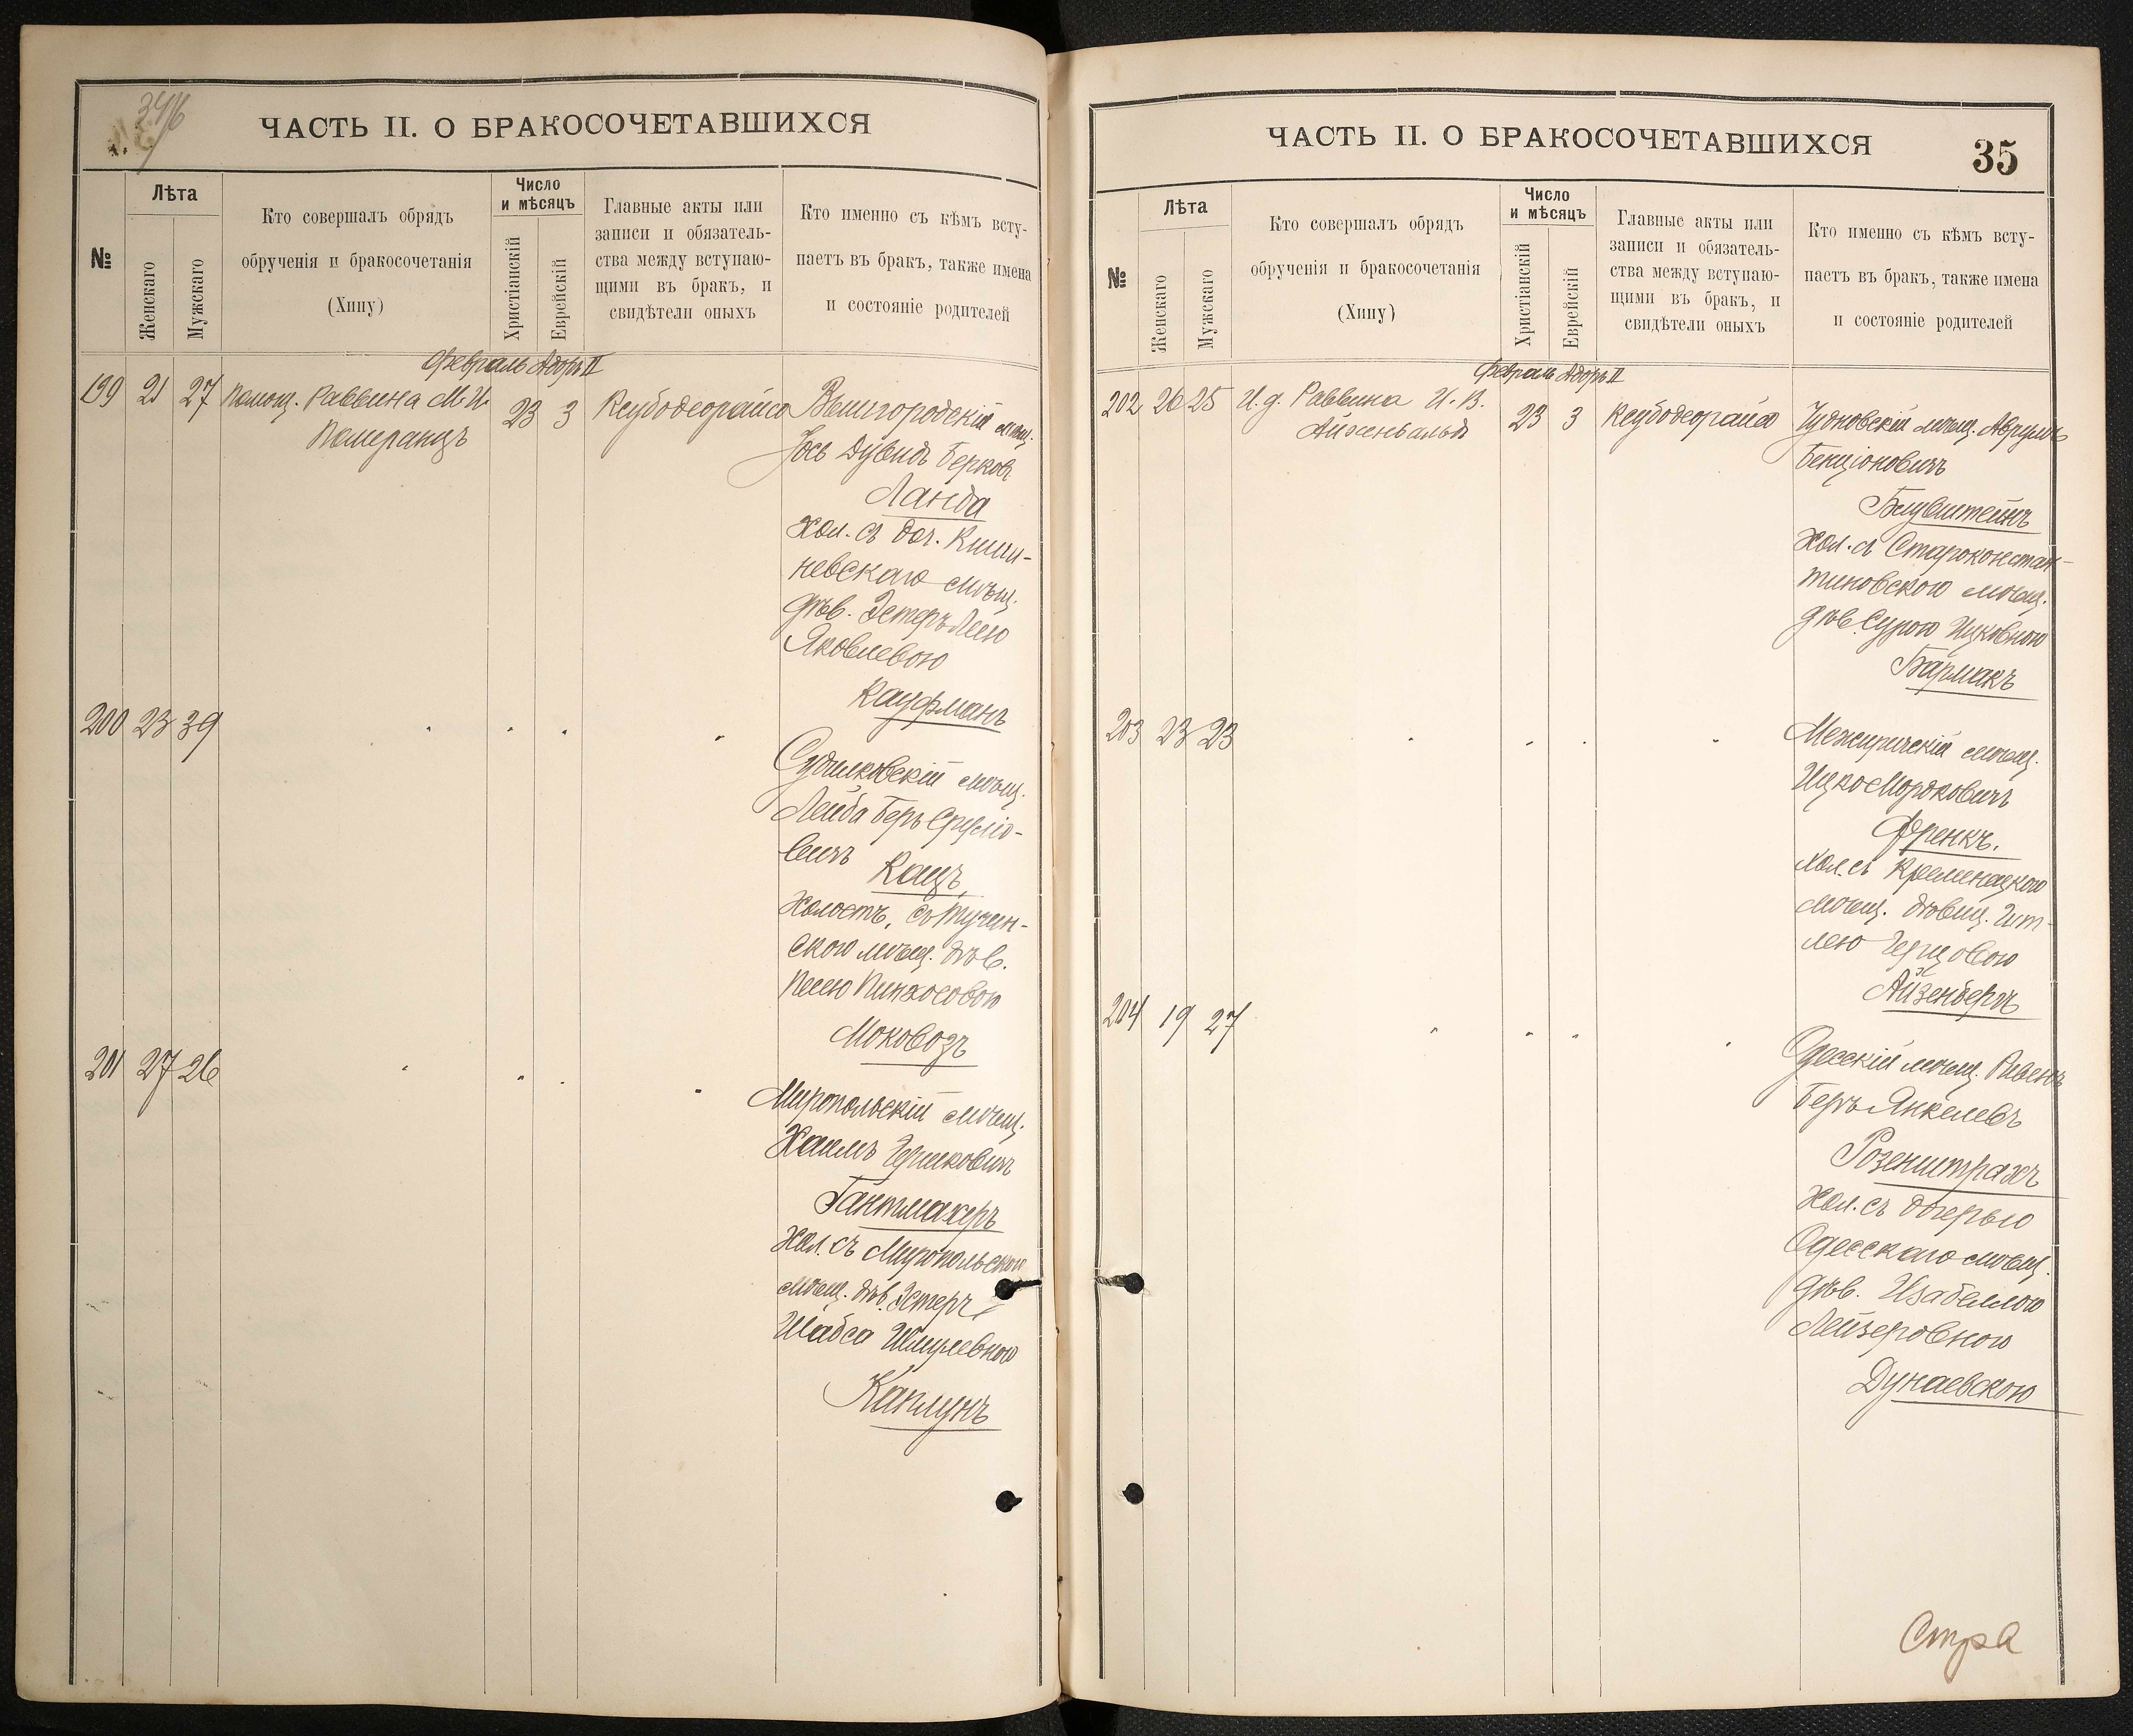 34/6
ЧАСТЬ II. О БРАКОСОЧЕТАВШИХСЯ
№
Лѣта
Женскаго
Мужскаго
Кто совершалъ обрядъ
обрученія и бракосочетанія
(Хипу)
Число
и мѣсяцъ
Христіанскій
Еврейскій
Главные акты или
записи и обязатель-
ства между вступаю-
щими въ бракъ, и
свидѣтели оныхъ
Кто именно съ кѣмъ всту-
паетъ въ бракъ, также имена
и состояніе родителей
Февраль Адоръ II
199 21 27 Помощ. Раввина М. И. 23 3 Ксубодеорайса Вышгородскій мѣщ.
Померанцъ
Іось Дувидъ Берковъ
Ланда
хол. съ доч. Киши-
невскаго мѣщ.
дѣв. Эстеръ Леею
Яковлевою
Кауфманъ
200 23 39
Судилковскій мѣщ.
Лейба Беръ Сруліо-
вичъ
Кацъ,
Холостъ, съ Тучин-
скою мѣщ. дѣв.
Песею Пинхосовою
Моковозъ
201 27 26
Миропольскій мѣщ.
Хаимъ Гершковичъ
Гантмахеръ
Хол. съ Миропольскою
мѣщ. дѣв. Эстеръ
Шабса Шмулевною
Каплунъ
ЧАСТЬ II. О БРАКОСОЧЕТАВШИХСЯ
35
№
Лѣта
Женскаго
Мужскаго
Кто совершалъ обрядъ
обрученія и бракосочетанія
(Хипу)
Число
и мѣсяцъ
Христіанскій
Еврейскій
Главные акты или
записи и обязатель-
ства между вступаю-
щими въ бракъ, и
свидѣтели оныхъ
Кто именно съ кѣмъ всту-
паетъ въ бракъ, также имена
и состояніе родителей
Февраль Адоръ II
202 26 25 И. д. Раввина И. В. 23 3 Ксубодеорайса Чудновскій мѣщ. Аврумъ
Айзенвальдъ
Бенціоновичъ
Блувштейнъ
Хол. съ Староконстан-
тиновскою мѣщ.
дѣв. Сурою Ицковною
Бармакъ
203 23 23
Межиричскій мѣщ.
Ицко Мордковичъ
Френкъ.
Хол. съ Кременецкою
мѣщ. дѣвиц. Гит-
лею Герцовою
Айзенбергъ
204 19 27
Одесскій мѣщ. Рывенъ
Беръ Янкелевъ
Розенштрахъ
Хол. съ дочерью
Одесскаго мѣщ.
дѣв. Изабеллою
Лейзеровною
Дунаевскою